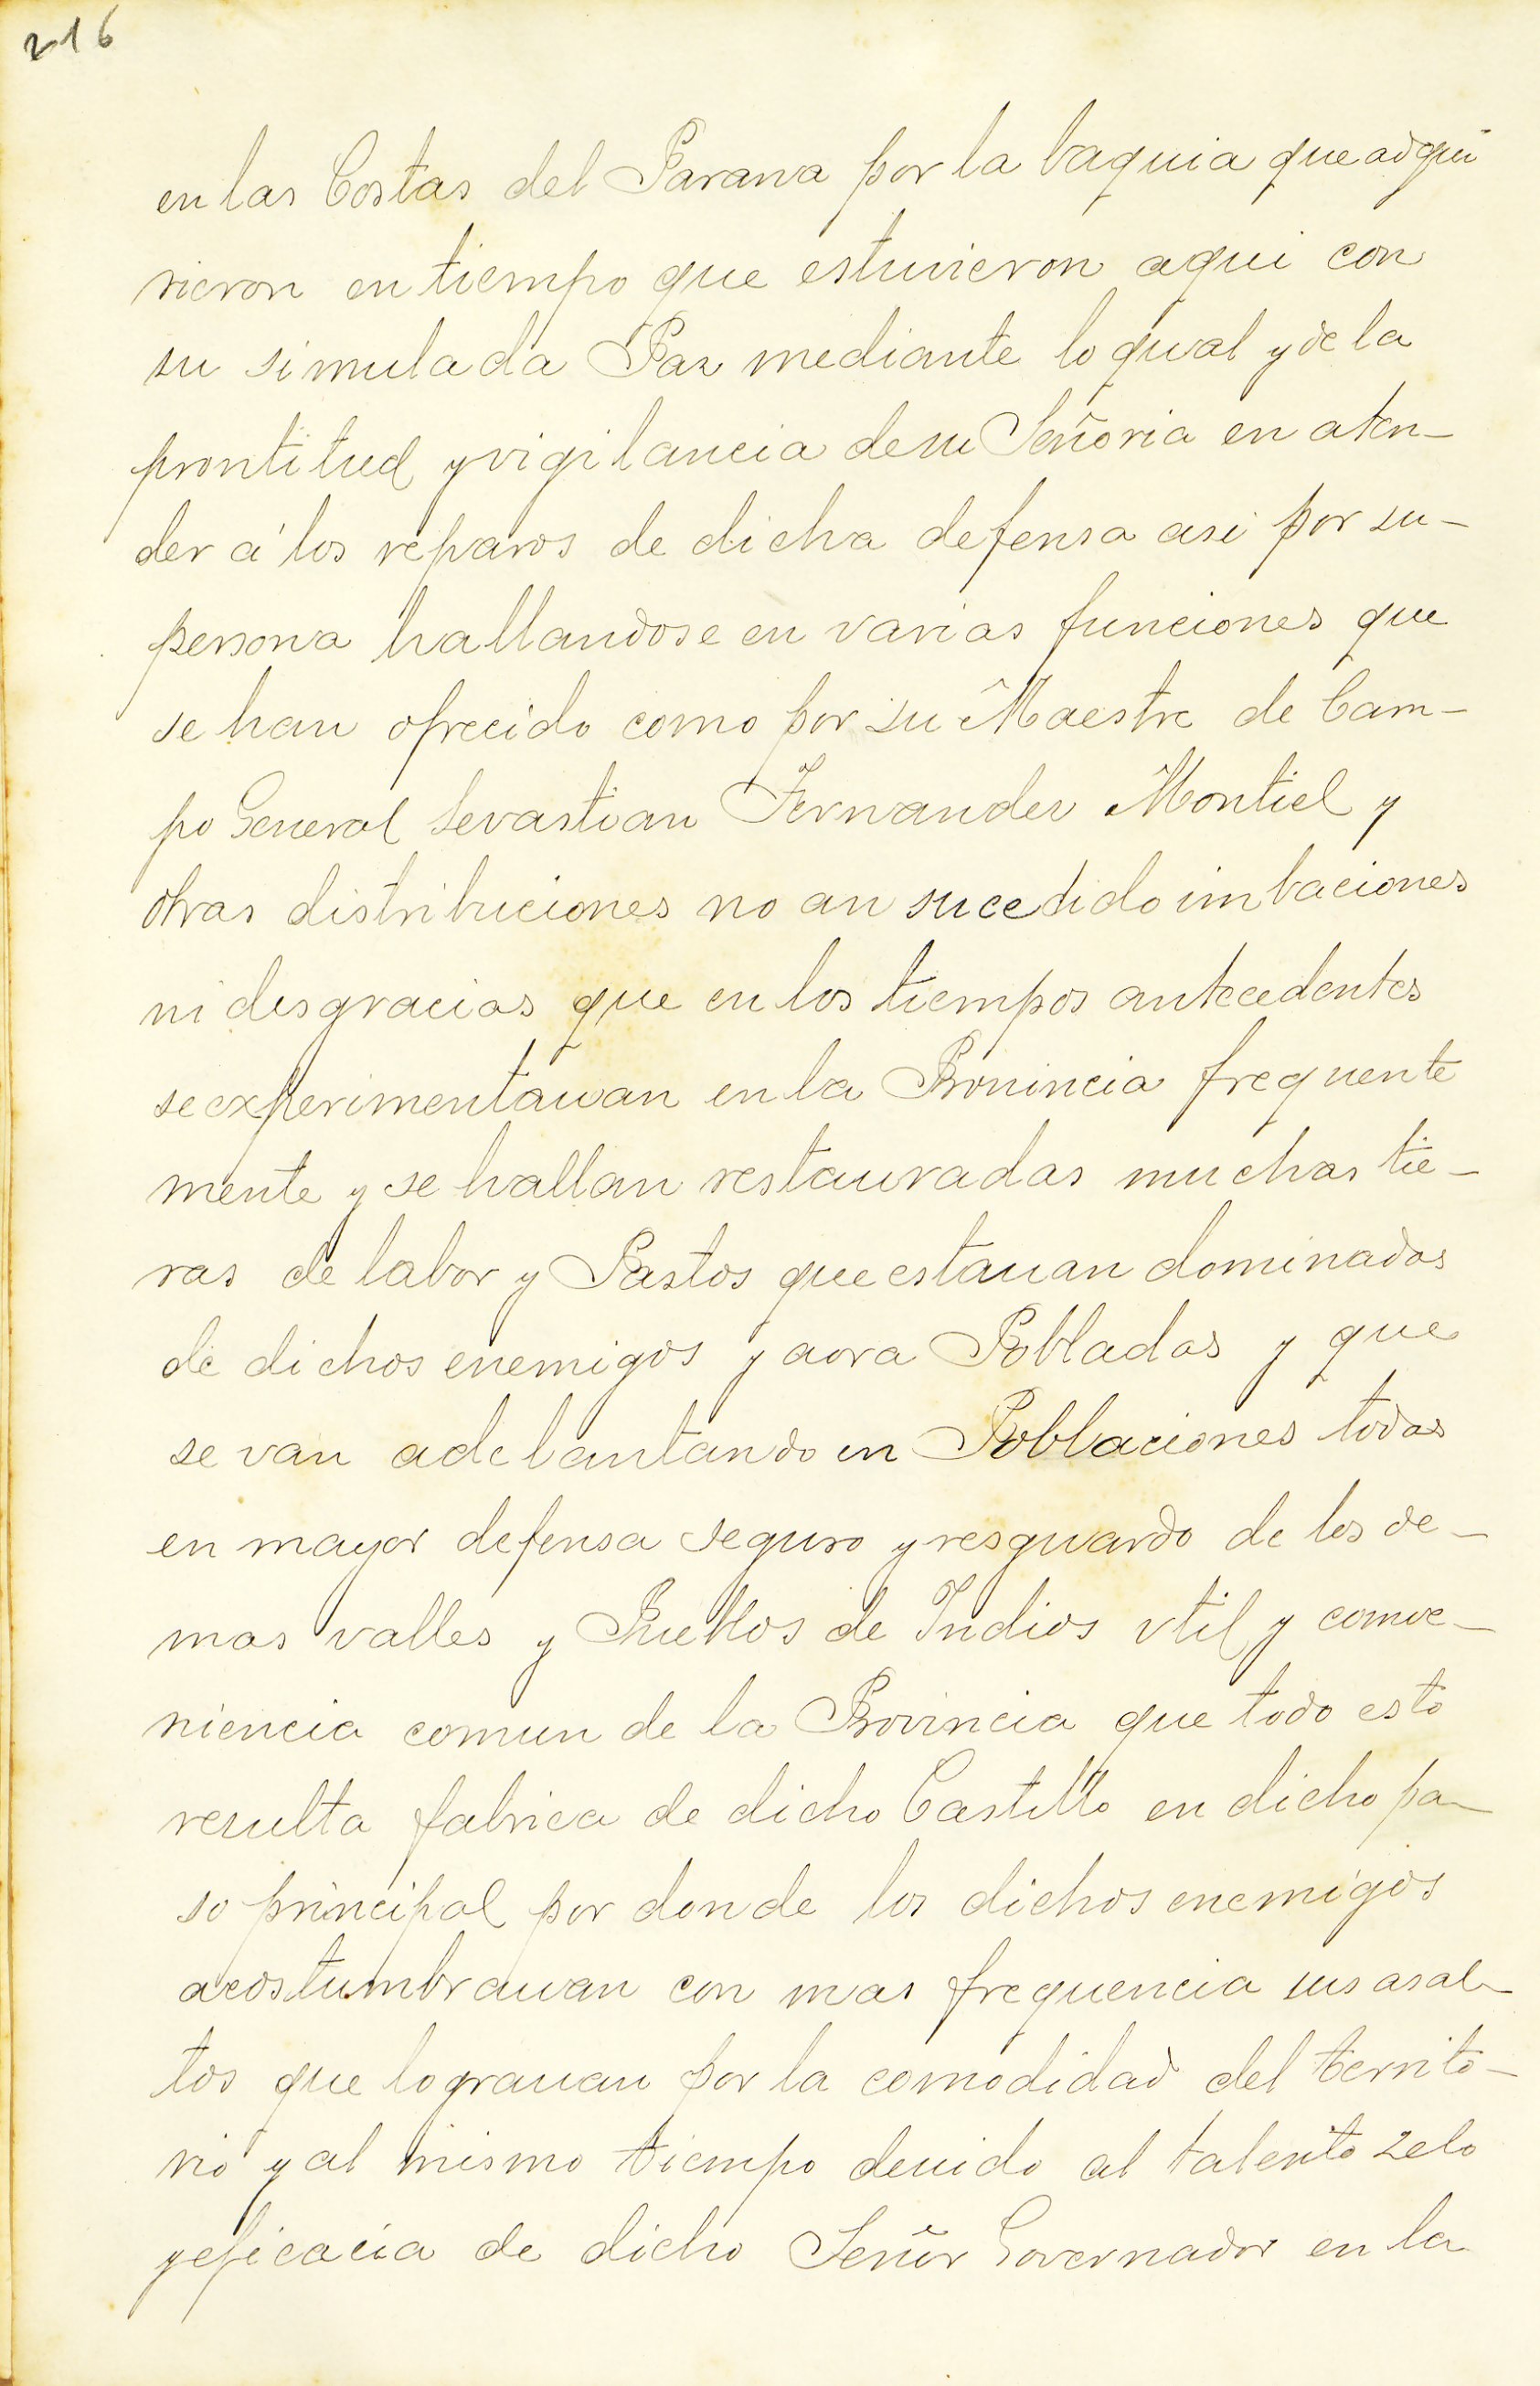 216
en las Costas del Parana por la baquia que adqui
rieron en tiempo que estuvieron aqui con
su simulada Paz mediante lo qual y de la
prontitud y vigilancia de su Señoria en aten-
der á los reparos de dicha defensa asi por su-
persona hallandose en varias funciones que
se han ofrecido como por su Maestre de Cam-
po General Sevastian Fernandez Montiel y
otras distribuciones no an sucedido imbaciones
ni desgracias que en los tiempos antecedentes
se experimentauan en la Prouincia frequente
mente y se hallan restauradas muchas tie-
ras de labor y Pastos que estauan dominados
de dichos enemigos y aora Pobladas y que
se van adelantando en Poblaciones todas
en mayor defensa seguro y resguardo de los de-
mas valles y Pueblos de Indios vtil y comve-
niencia comun de la Provincia que todo esto
resulta fabrica de dicho Castillo en dicho pa-
so principal por donde los dichos enemigos
acostumbrauan con mas frequencia sus asal-
tos que lograuan por la comodidad del territo-
rio y al mismo tiempo deuido al talento zelo
y eficacia de dicho Señor Governador en la